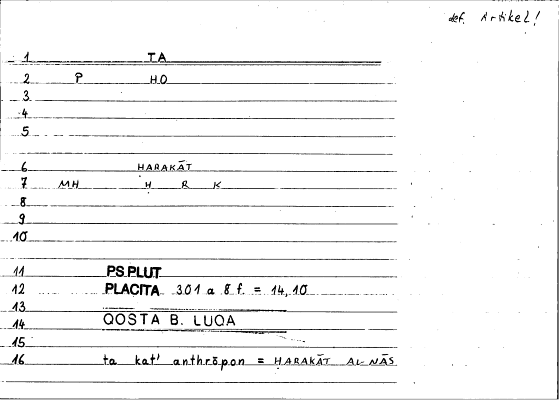 def. Artikel!
1 TA
2 P HO
3
4
5
6 ḤARAKĀT
7 MH Ḥ R K
8
9
10
11 PS.PLUT
12 PLACITA 301 a 8 f. = 14,10
13
14 QOSTA B. LUQA
15
16 ta kat' anthrōpon = ḤARAKĀT AL-NĀS